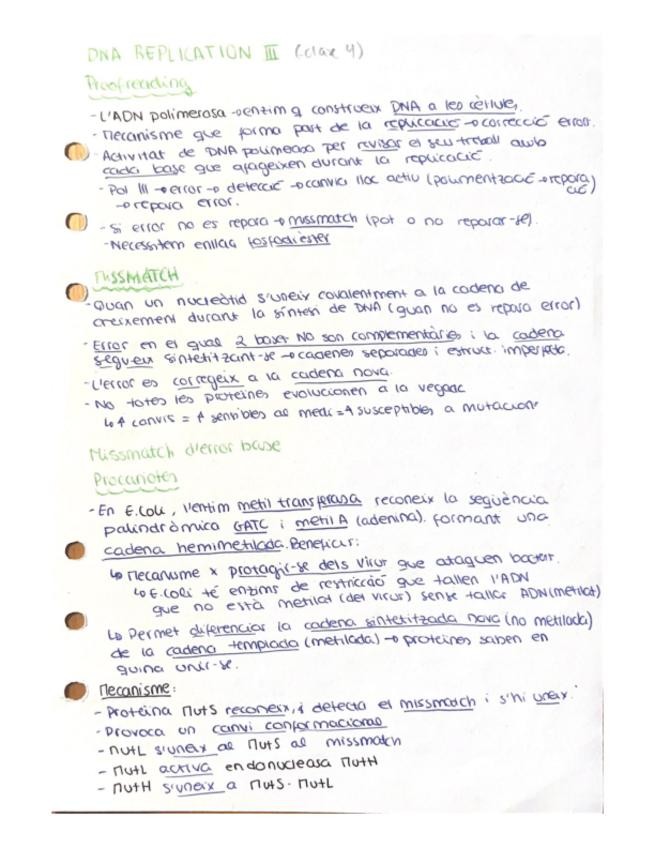 DNA REPLICATION III (clase 4)
Proofreading
- L'ADN polimerasa → enzim q construeix DNA a les cèl·lules.
- Mecanisme que forma part de la replicació → correcció error.
- Activitat de DNA polimerasa per revisar el seu treball amb
cada base que afageixen durant la replicació.
- Pol III → error → detecció → canvia lloc actiu (polimerització → repara
ció)
→ repara error.
- Si error no es repara → missmatch (pot o no reparar-se).
- Necessitem enllaç fosfodiester
MISSMATCH
- Quan un nucleòtid s'uneix covalentment a la cadena de
creixement durant la síntesi de DNA (quan no es repara error)
- Error en el qual 2 bases NO son complementàries i la cadena
segueix sintetitzant-se → cadenes separades i estruct. imperfecta.
- L'error es corregeix a la cadena nova.
- No totes les proteïnes evolucionen a la vegada
↳ ↑ canvis = ↑ sensibles al medi = ↑ susceptibles a mutacions
Missmatch d'error base
Procariotes
- En E.Coli, l'entim metil transferasa reconeix la seqüència
palindròmica GATC i metil A (adenina). formant una
cadena hemimetilada. Beneficis:
↳ Mecanisme x protegir-se dels virus que ataquen bacter.
↳ E.coli té enzims de restricció que tallen l'ADN
que no està metilat (del virus) sense tallar ADN (metilat)
↳ Permet diferenciar la cadena sintetitzada nova (no metilada)
de la cadena templada (metilada) → proteïnes saben en
quina unir-se.
Mecanisme:
- Proteïna MutS reconeix, i detecta el missmatch i s'hi uneix.
- Provoca un canvi conformacional
- MutL s'uneix al MutS al missmatch
- MutL activa endonucleasa MutH
- MutH s'uneix a MutS - MutL